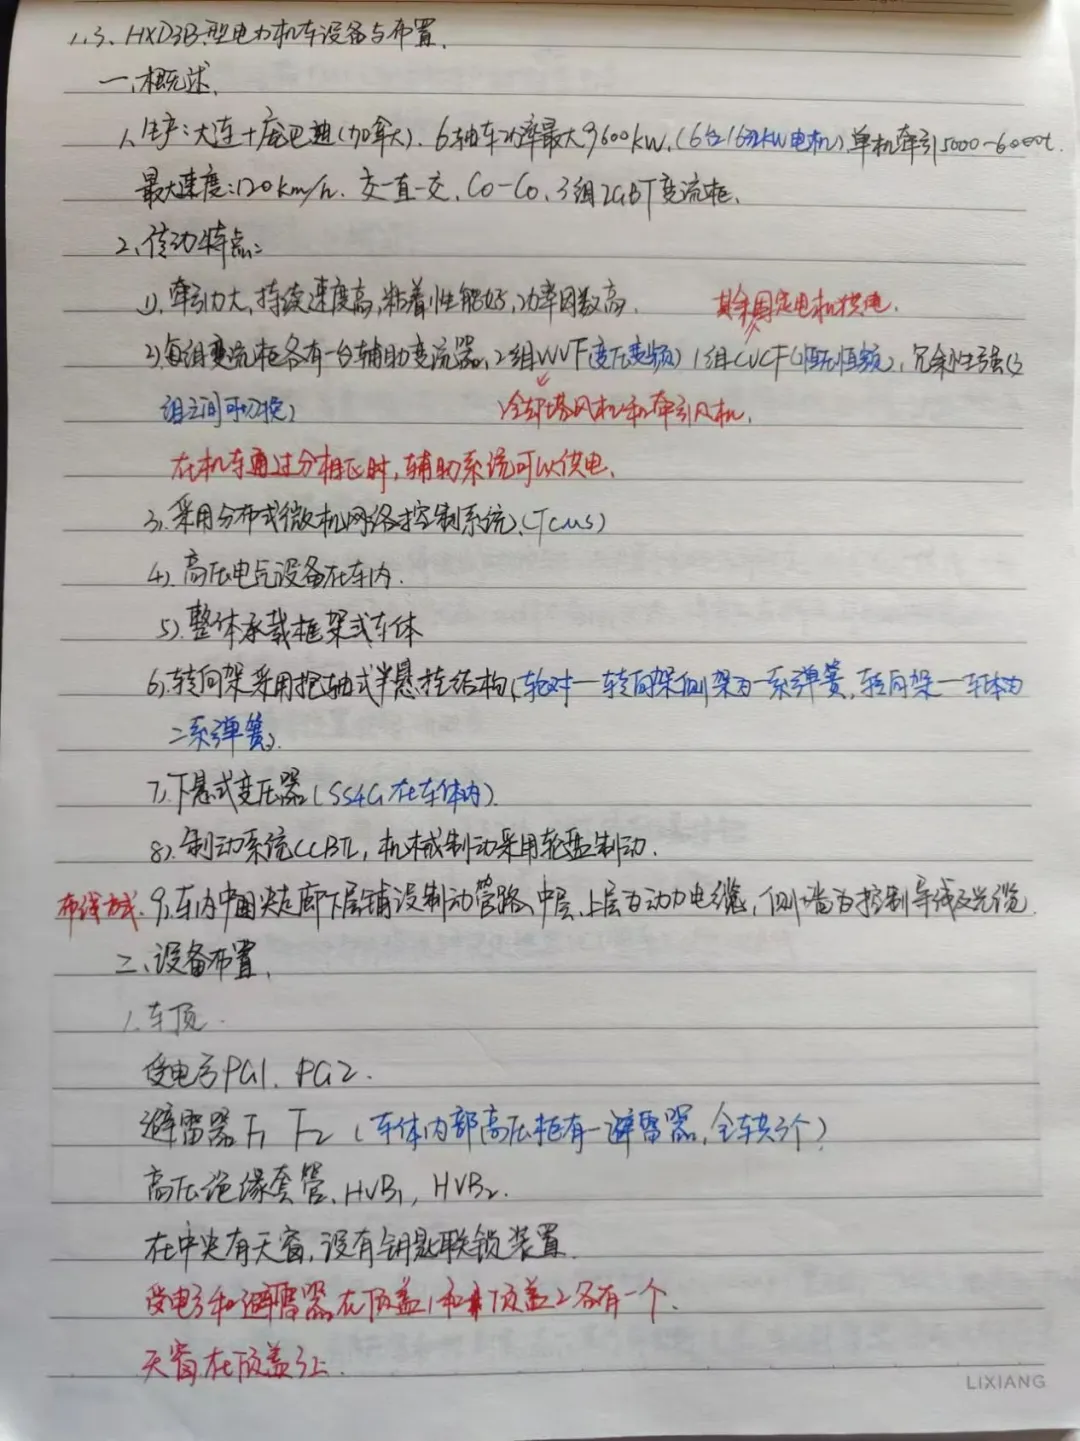 1.3、HXD3B型电力机车设备与布置.
一、概述.
1、生产:大连+庞巴迪(加拿大). 6轴车功率最大9600kW.(6台1632kW电机)单机牵引5000~6000t.
最大速度:120km/h. 交-直-交. Co-Co、3组IGBT变流柜.
2、传动特点:
1). 牵引力大, 持续速度高, 粘着性能好, 功率因数高.
其余固定电机供电.
2).每组变流柜各有一台辅助变流器,2组VVVF(变压变频)1组CVCF(恒压恒频),冗余性强(3
组之间可切换)
冷却塔风机和牵引风机.
在机车通过分相区时,辅助系统可以供电.
3). 采用分布式微机网络控制系统.(TCMS)
4). 高压电气设备在车内.
5). 整体承载框架式车体
6). 转向架采用抱轴式半悬挂结构(轮对—转向架侧架为一系弹簧,转向架—车体为
二系弹簧).
7).下悬式变压器(SS4G在车体内).
8). 制动系统CCBⅡ, 机械制动采用轮盘制动.
布线方式. 9). 车内中间走廊下层铺设制动管路、中层、上层为动力电缆, 侧墙为控制导线及光缆.
二、设备布置.
1.车顶.
受电弓PG1. PG2.
避雷器 F1 F2 (车体内部高压柜有一避雷器,全车共3个)
高压绝缘套管. HVB1, HVB2.
在中央有天窗,设有钥匙联锁装置.
受电弓和避雷器在顶盖1和顶盖2各有一个.
天窗在顶盖3上.
LIXIANG